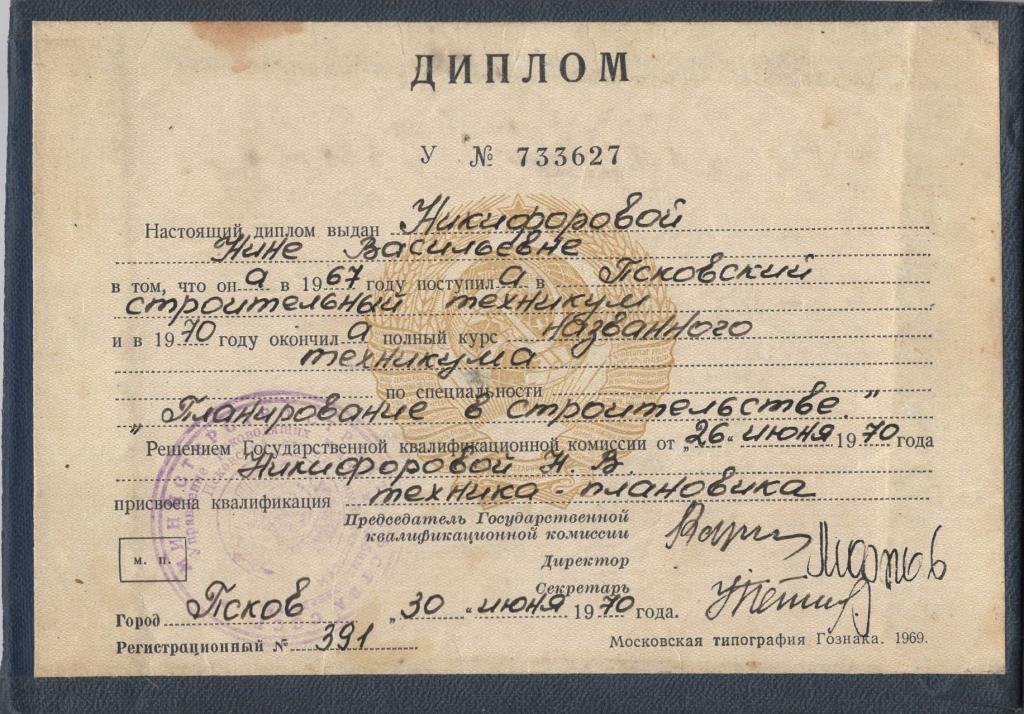 ДИПЛОМ
У № 733627
Настоящий диплом выдан Никифоровой
Нине Васильевне
в том, что он а в 1967 году поступил а в Псковский
строительный техникум
и в 1970 году окончил а полный курс названного
техникума
по специальности
„Планирование в строительстве."
Решением Государственной квалификационной комиссии от „26" июня 1970 года
Никифоровой Н. В.
присвоена квалификация техника-плановика
Председатель Государственной
квалификационной комиссии
Директор
Секретарь
м. п.
Город Псков „30" июня 1970 года.
Регистрационный № 391
Московская типография Гознака. 1969.